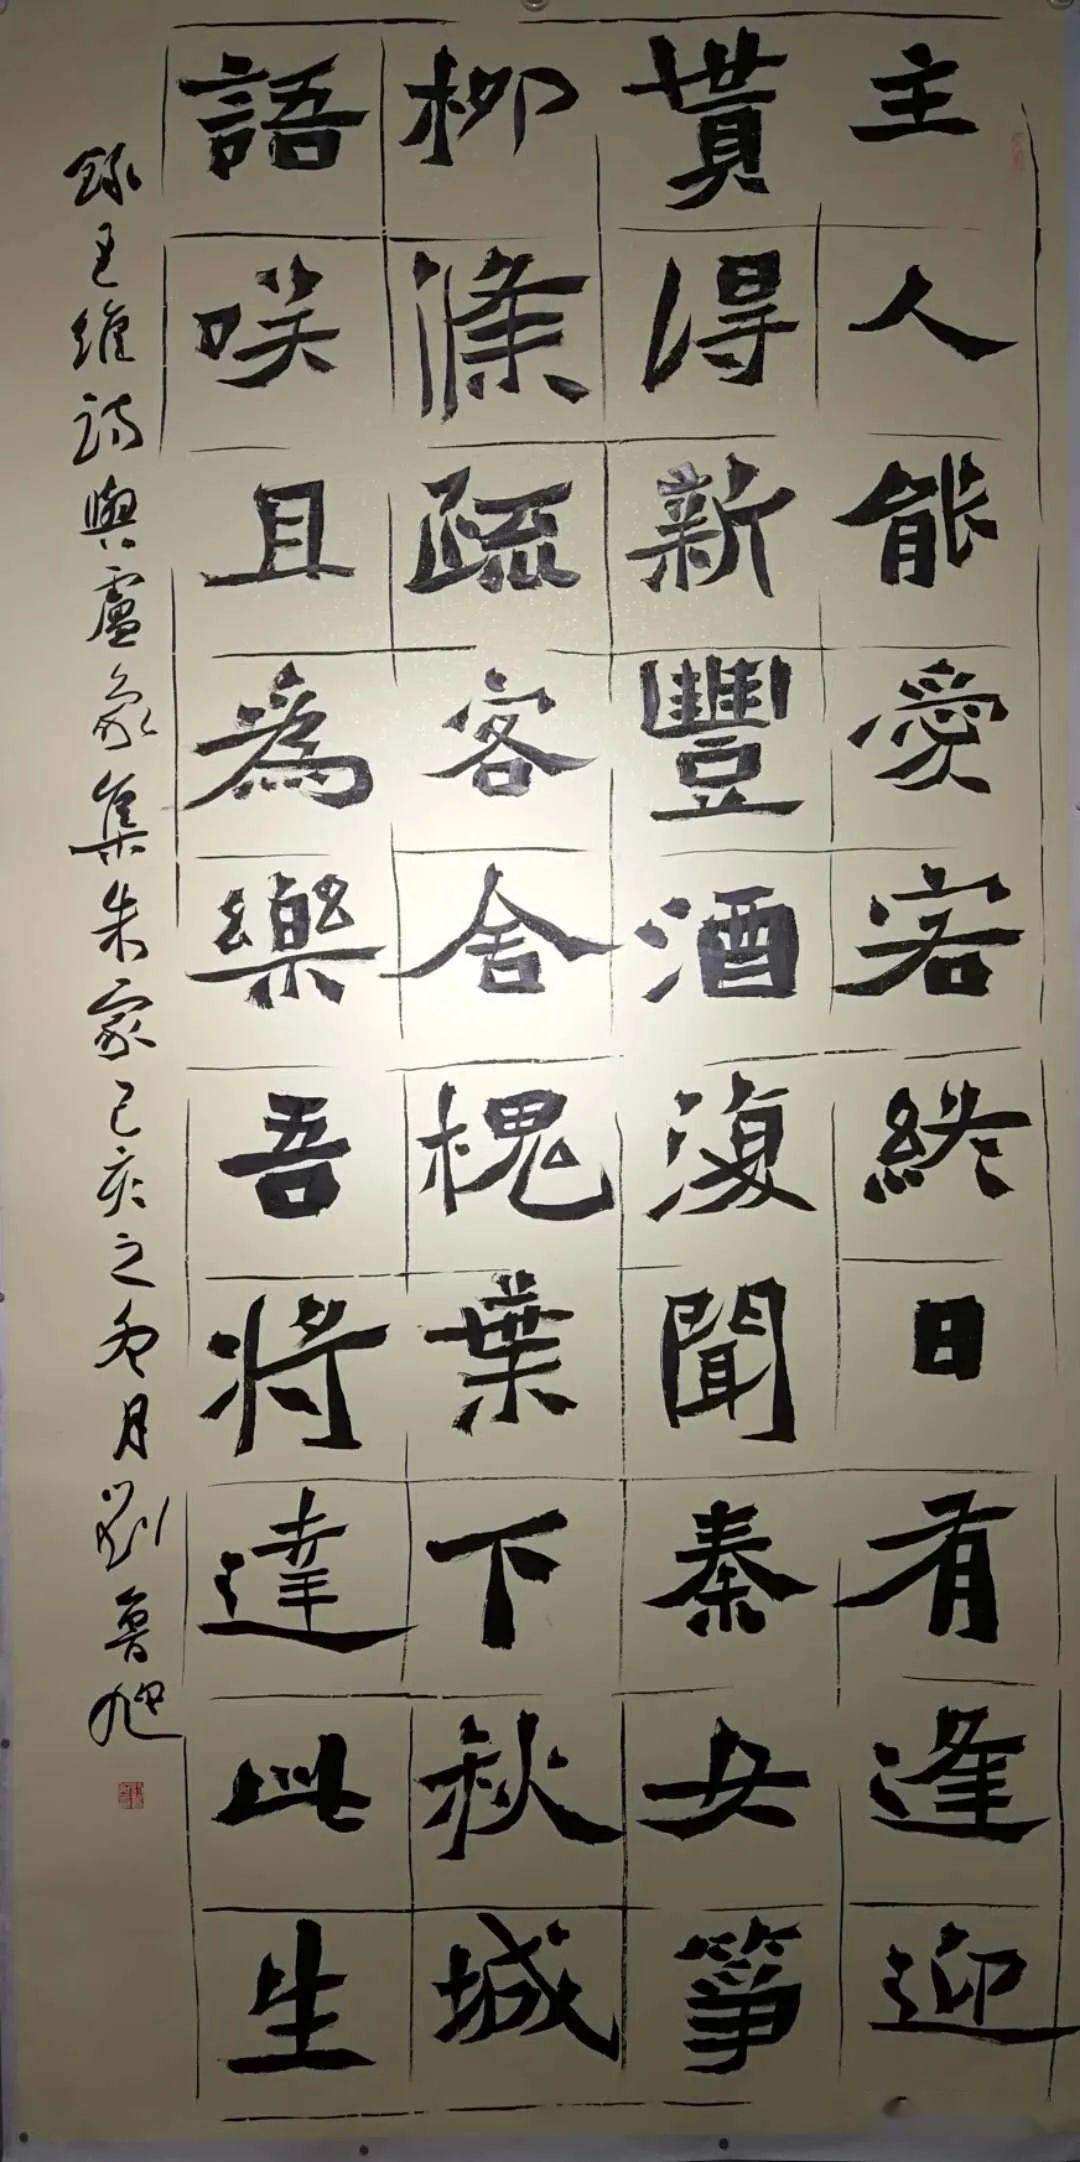 主人能愛客終日有逢迎
貰得新豐酒復聞秦女箏
柳條疏客舍槐葉下秋城
語咲且為樂吾將達此生
錄王維詩與盧象集朱家己亥之冬月劉魯旭